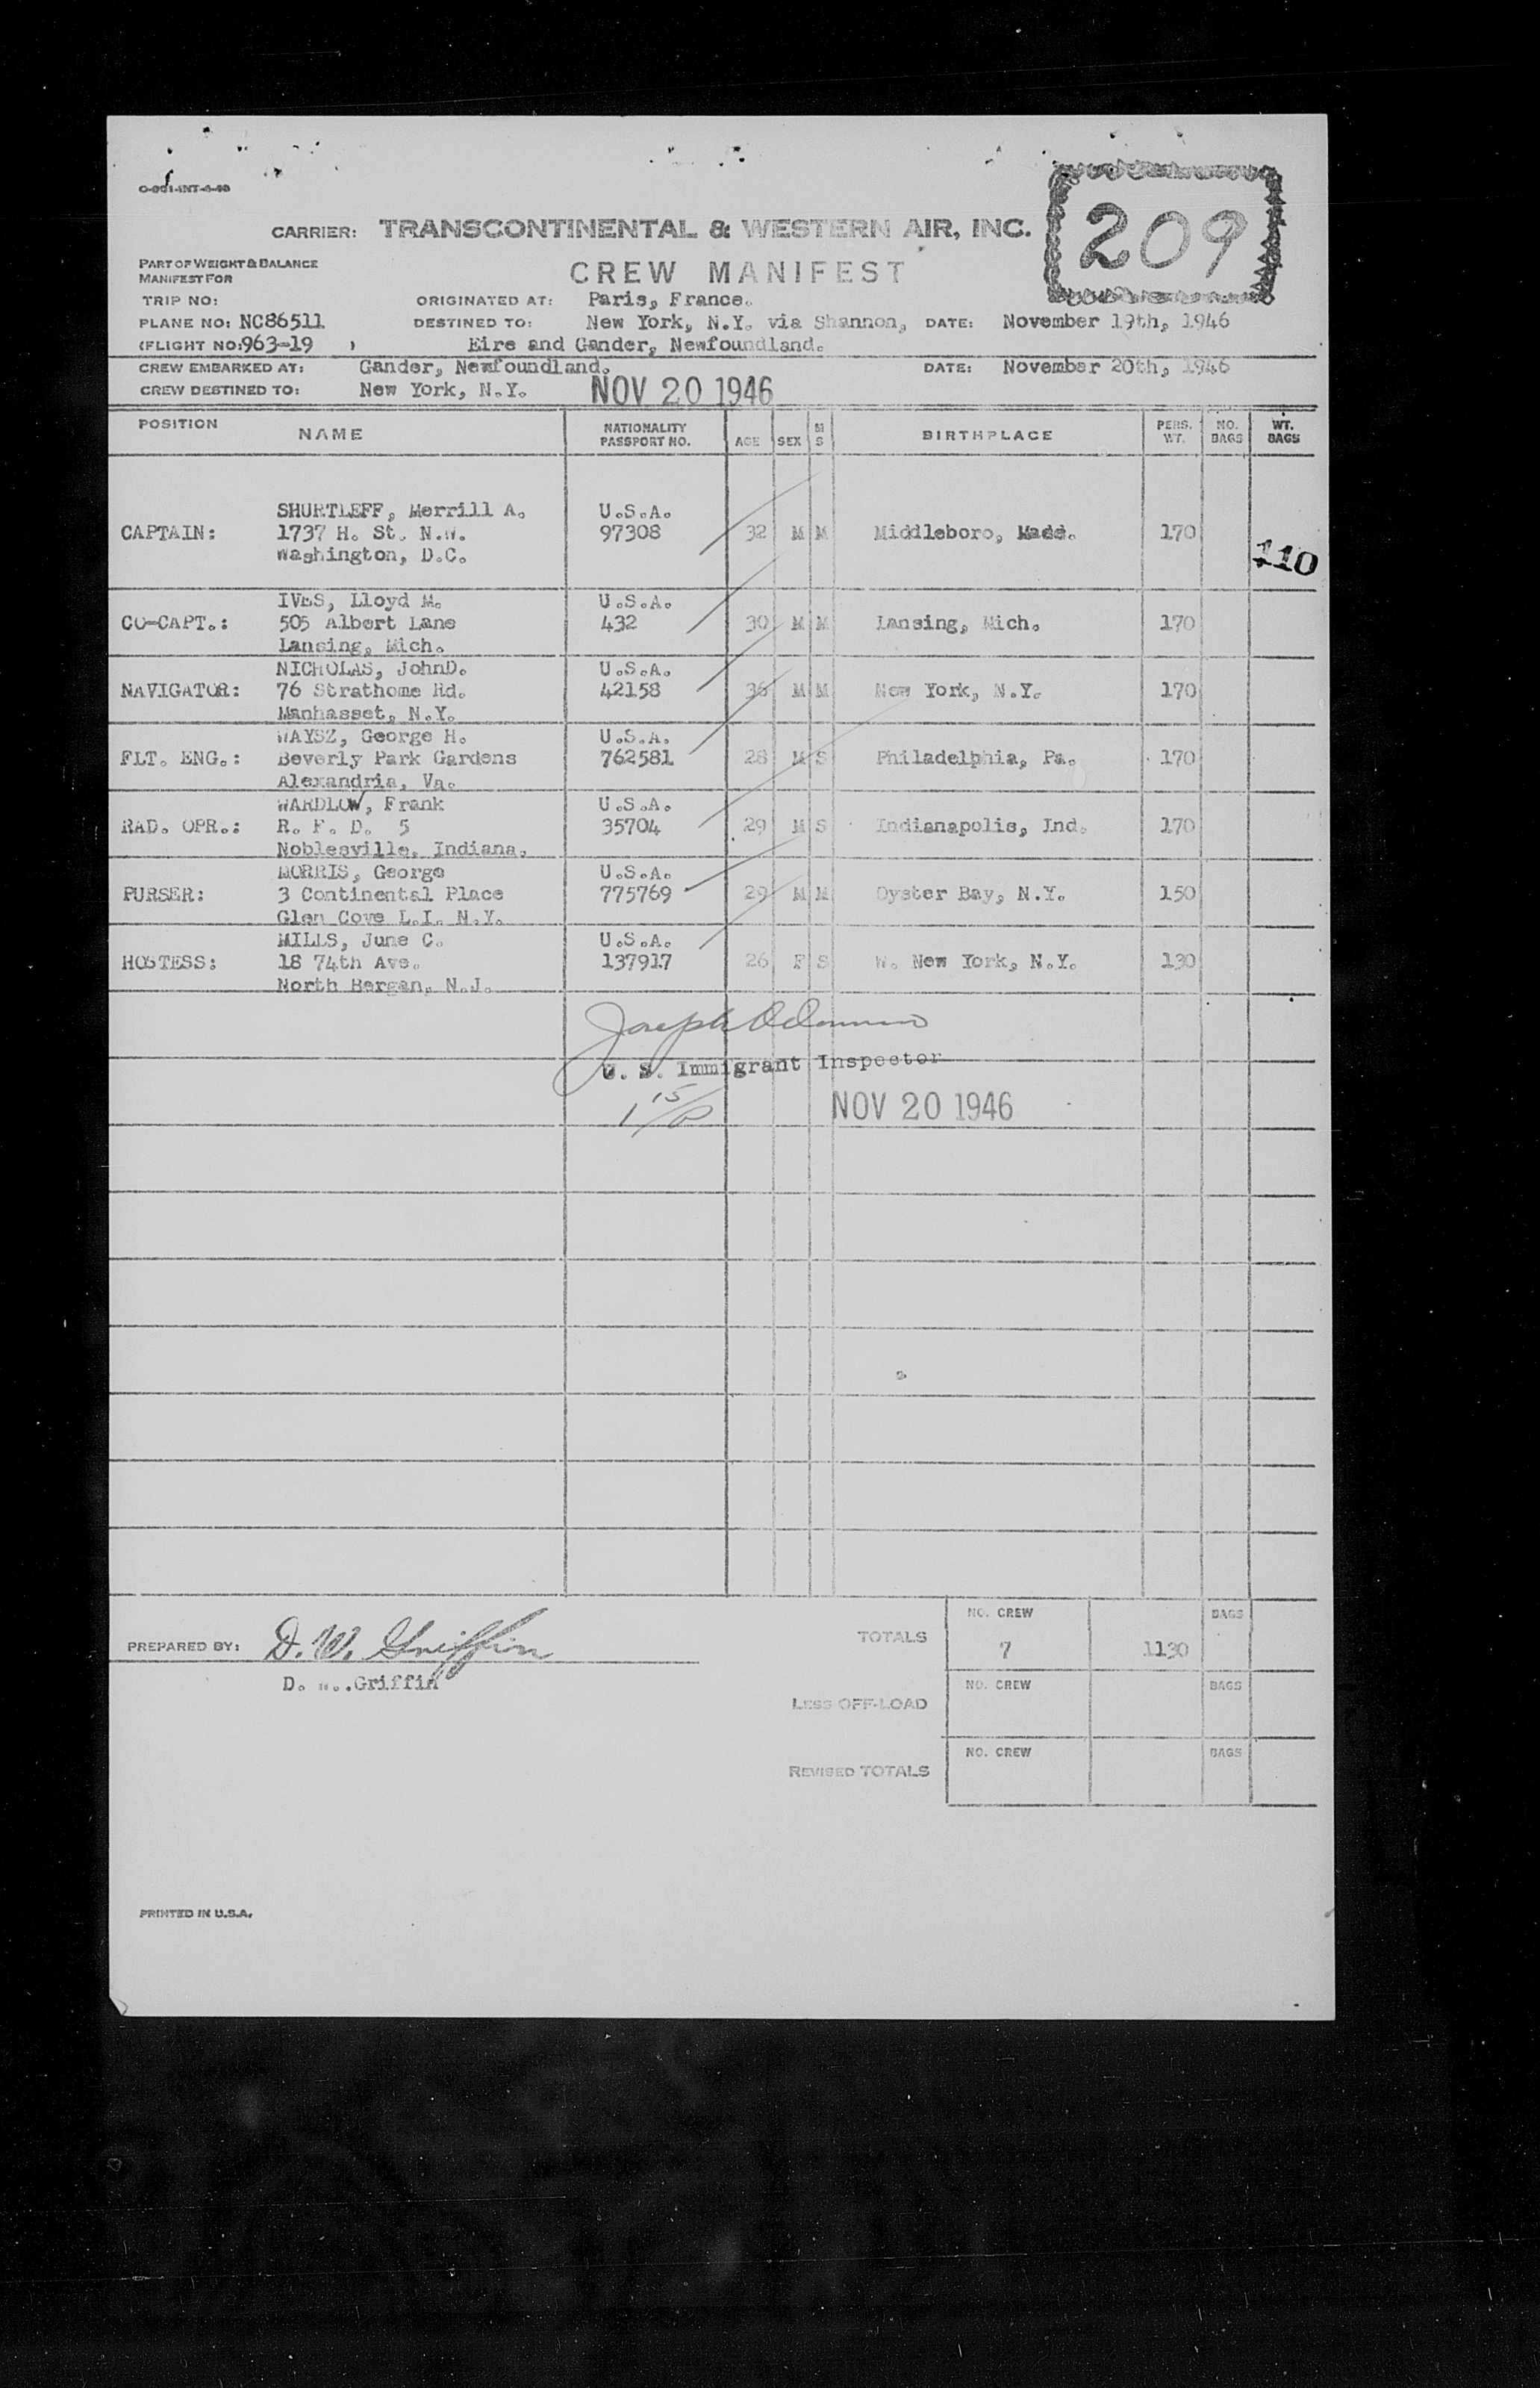 CARRIER: TRANSCONTINENTAL & WESTERN AIR, INC.
209
PART OF WEIGHT & BALANCE
MANIFEST FOR
CREW MANIFEST
TRIP NO:
ORIGINATED AT: Paris, France.
PLANE NO: NC86511
DESTINED TO: New York, N.Y. via Shannon, DATE: November 19th, 1946
(FLIGHT NO: 963-19 )
Eire and Gander, Newfoundland.
CREW EMBARKED AT: Gander, Newfoundland. DATE: November 20th, 1946
CREW DESTINED TO: New York, N.Y. NOV 20 1946
POSITION NAME NATIONALITY PASSPORT NO. AGE SEX M S BIRTHPLACE PERS. WT. NO. BAGS WT. BAGS
SHURTLEFF, Merrill A. U.S.A.
CAPTAIN: 1737 H. St. N.W. 97308 32 M M Middleboro, Mass. 170
Washington, D.C.
110
IVES, Lloyd M. U.S.A.
CO-CAPT.: 505 Albert Lane 432 30 M M Lansing, Mich. 170
Lansing, Mich.
NICHOLAS, JohnD. U.S.A.
NAVIGATOR: 76 Strathome Rd. 42158 36 M M New York, N.Y. 170
Manhasset, N.Y.
WAYSZ, George H. U.S.A.
FLT. ENG.: Beverly Park Gardens 762581 28 M S Philadelphia, Pa. 170
Alexandria, Va.
WARDLOW, Frank U.S.A.
RAD. OPR.: R. F. D. 5 35704 29 M S Indianapolis, Ind. 170
Noblesville, Indiana.
MORRIS, George U.S.A.
PURSER: 3 Continental Place 775769 29 M M Oyster Bay, N.Y. 150
Glen Cove L.I. N.Y.
MILLS, June C. U.S.A.
HOSTESS: 18 74th Ave. 137917 26 F S W. New York, N.Y. 130
North Bergan, N.J.
Joseph
U. S. Immigrant Inspector
NOV 20 1946
NO. CREW BAGS
PREPARED BY: D. W. Griffin TOTALS 7 1130
D. W. .Griffin
NO. CREW BAGS
LESS OFF-LOAD
NO. CREW BAGS
REVISED TOTALS
PRINTED IN U.S.A.